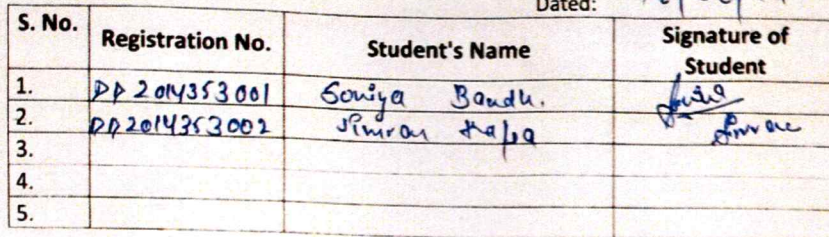 Dated:
S. No. Registration No. Student's Name Signature of Student
1. DD2014353001 Soniya Bandh.
2. DD2014353002 Simran
3.
4.
5.